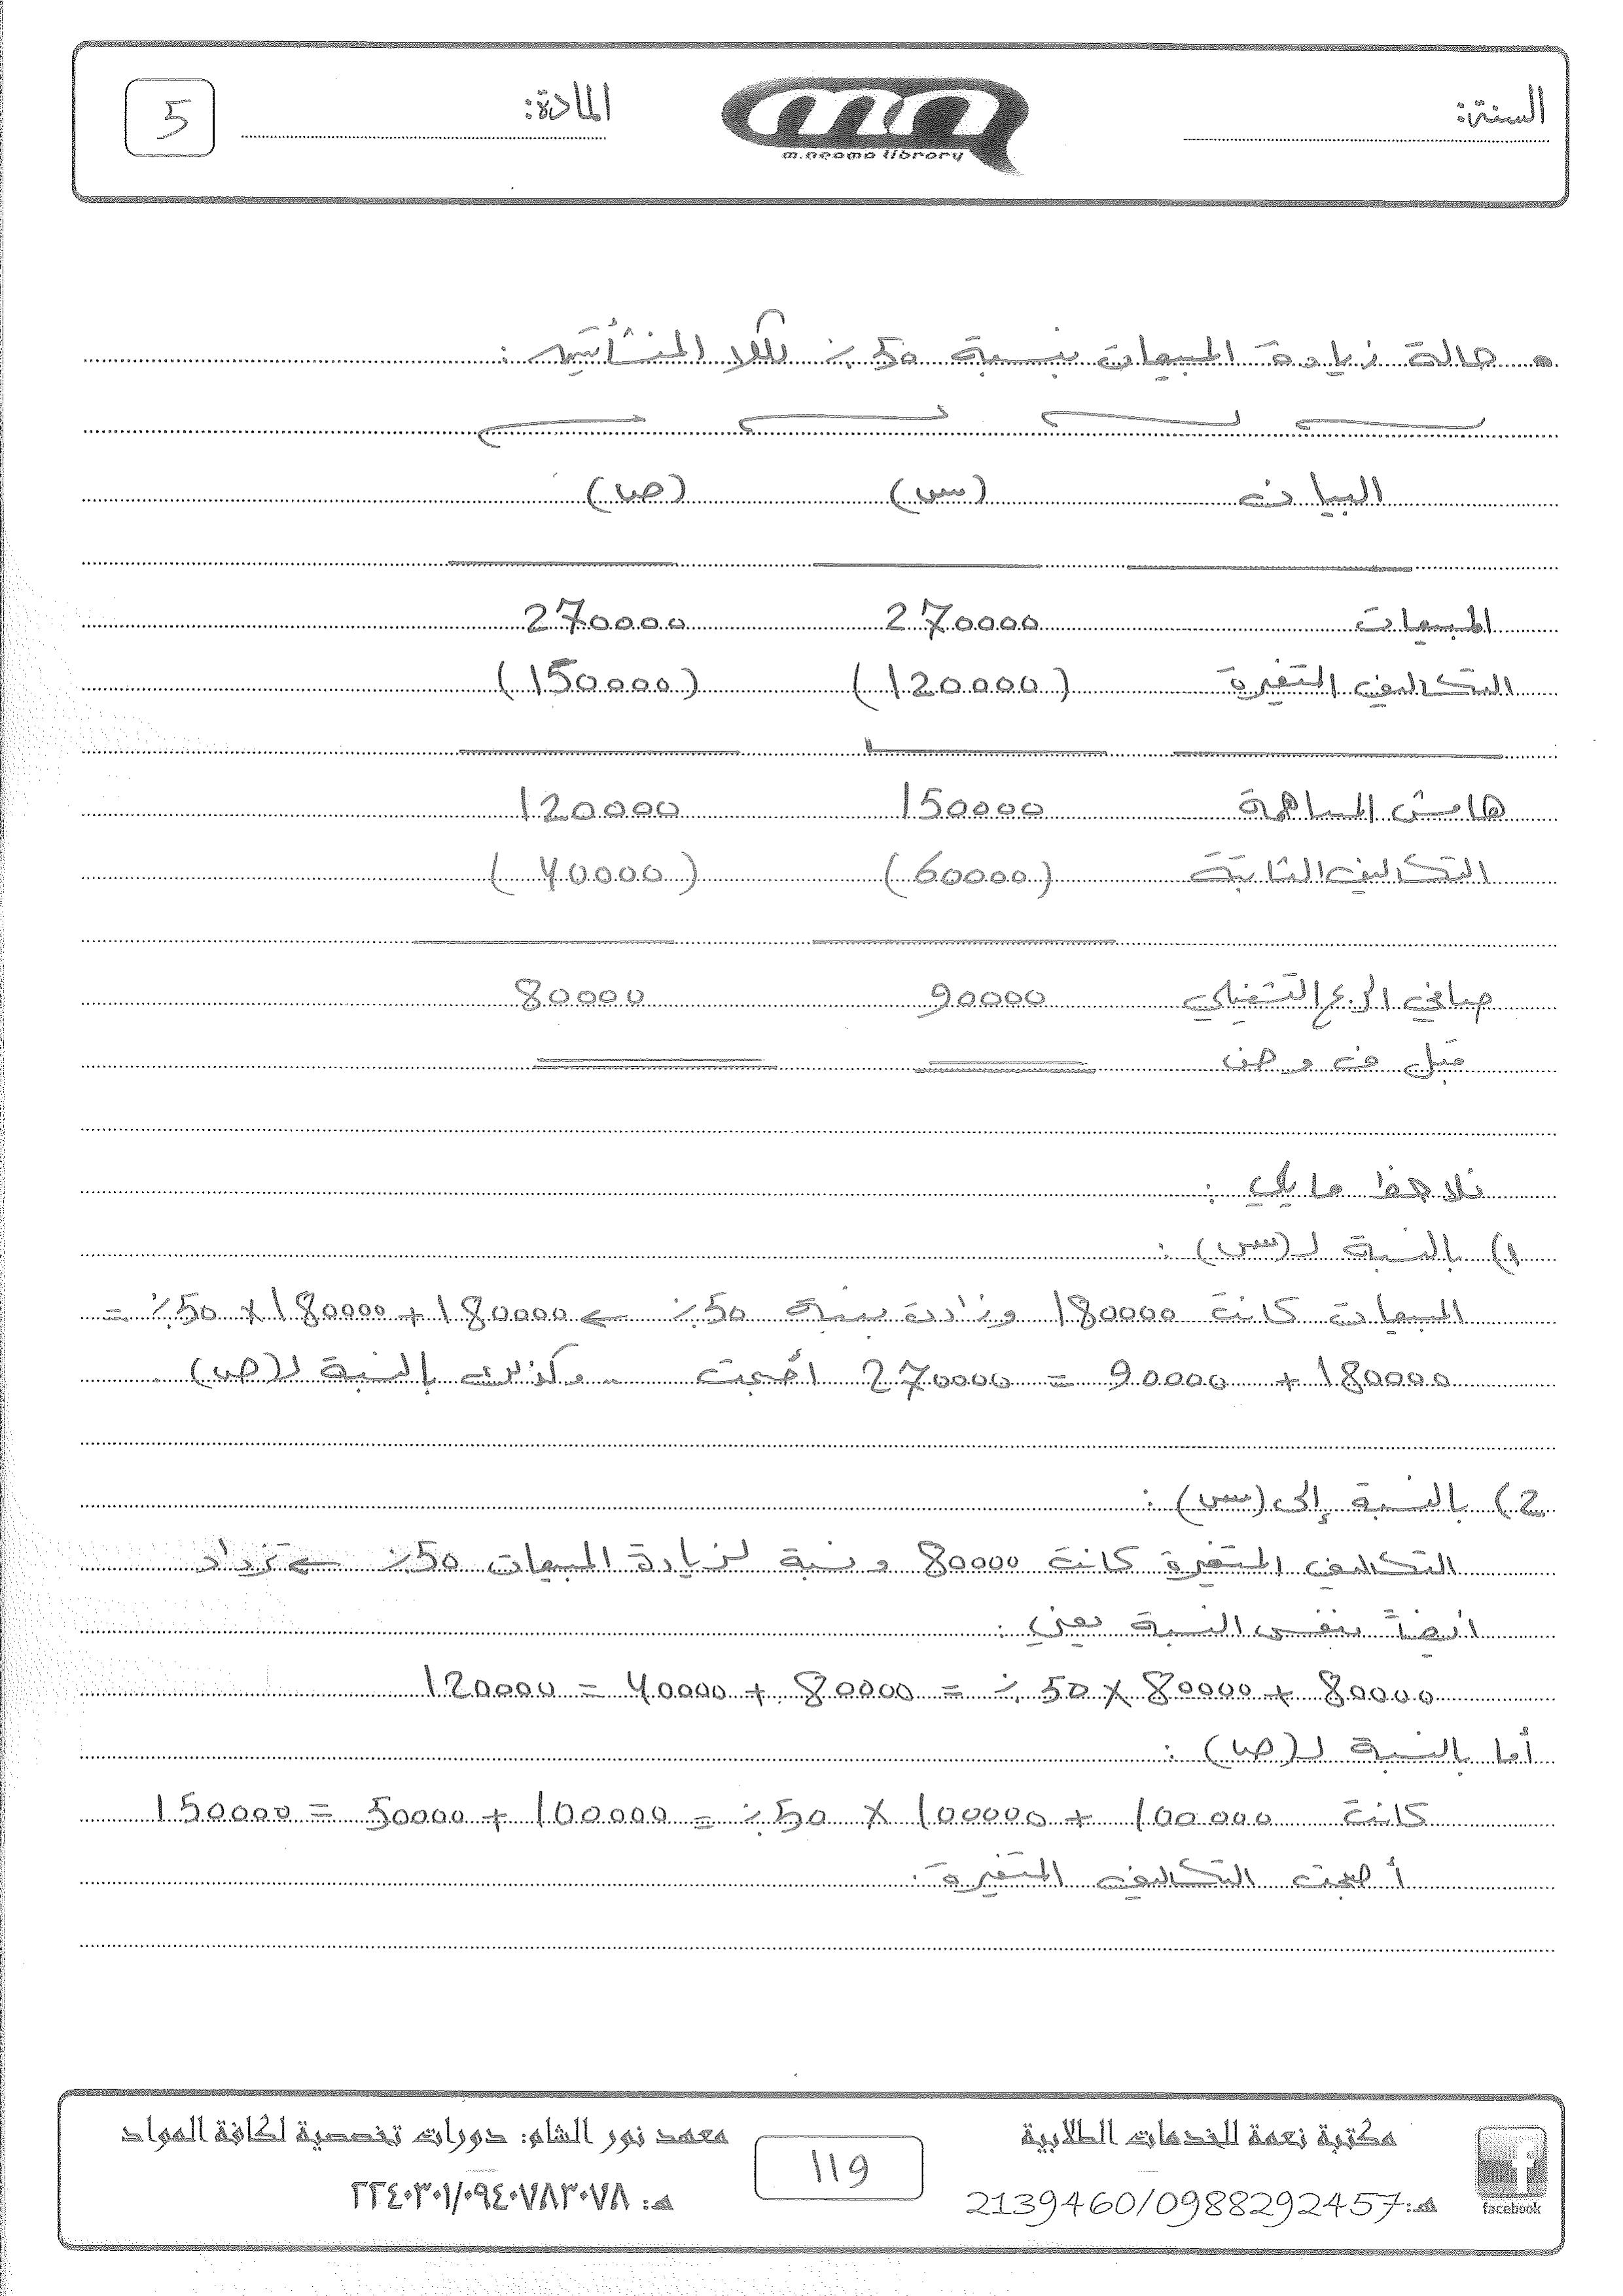 السنة:
m.neama library
المادة:
5
• حالة زيادة المبيعات بنسبة 50٪ لكلا المنشأتين :
البيان (س) (ص)
المبيعات 270000 270000
التكاليف المتغيرة (120000) (150000)
هامش المساهمة 150000 120000
التكاليف الثابتة (60000) (40000)
صافي الربح التشغيلي 90000 80000
قبل ف و ض
نلاحظ ما يلي :
1) بالنسبة لـ (س) :
المبيعات كانت 180000 وزادت بنسبة 50٪ ← 180000 + 180000 × 50٪ =
180000 + 90000 = 270000 أصبحت . وكذلك بالنسبة لـ (ص) .
2) بالنسبة إلى (س) :
التكاليف المتغيرة كانت 80000 ونسبة لزيادة المبيعات 50٪ ← تزداد
أيضاً بنفس النسبة يعني :
80000 + 80000 × 50 ٪ = 80000 + 40000 = 120000
أما بالنسبة لـ (ص) :
كانت 100000 + 100000 × 50٪ = 100000 + 50000 = 150000
أصبحت التكاليف المتغيرة .
مكتبة نعمة للخدمات الطلابية
هـ: 2139460/0988292457
facebook
119
معهد نور الشام: دورات تخصصية لكافة المواد
هـ: ٢٢٤٠٣٠١/٠٩٤٠٧٨٣٠٧٨